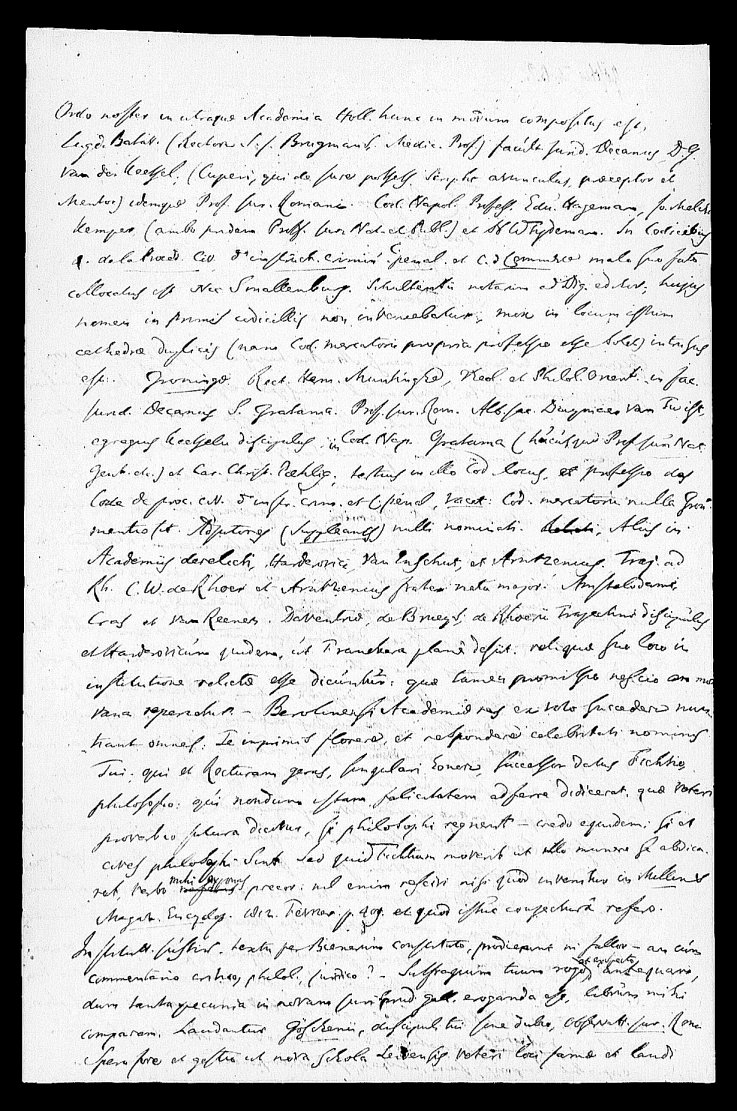 Ordo noster in utraque Academia Holl. hunc in modum compositus est,
Lugd. Batav. (Rectore S. J. Brugmans Medic. Prof) facult. jurid. Decanus D. G.
van der Keessel, (Cuperi, qui de jure possess. scripsit avunculus, praeceptor et
Mentor) idemque Prof. jur. Romani. Cod. Napol. Professs. Edu. Hageman, Jo. Melch.
Kemper (ambo pridem Proff. jur. Nat. et Publ.) et H W Tydeman. In Codicibus
de la Proced. Civ. d'instruct. crimin. penal. et C. d Commerce malo suo fato
collocatus est Nic Smallenburg. Schultentii notarum ad Dig. editor; hujus
nomen in primis codicillis non inveniebatur, mox in locum istum
cathedrae duplicis (nam Cod. mercatorii propria professio esse solet) intrusus
est. Groningae Rect. Herm. Muntinghe, Theol. et Philol. Orient. in fac.
jurid. Decanus S. Gratama. Prof. jur. Rom. Alb. Jac. Duymaer van Twist,
egregius Keesselii discipulus, in Cod. Nap. Gratama (hucusque Prof. jur. Nat.
Gent. etc.) et Car. Christ. Pæhlig, tertius in illo Cod. locus, et professio des
Code de proc. civ. d'instr. crim. et C. penal, vacat. Cod. mercatorii nulla Gron.
mentio fit. Adjutores (Suppleants) nulli nominati. Aliis in
Academiis derelicti, Harderovici van Enschut, et Arntzenius. Traj. ad
Rh. C. W. de Rhoer et Arntzenius frater natu major. Amstelodami
Cras et van Reenen. Daventriae, de Brueys, de Rhoerii Trajectini discipulus
et Harderovicum quidem, ut Franekera plane desiit. reliquae suo loco in
institutione relictae esse dicuntur: quae tamen promissio nescio an non
vana reperiatur. – Berolinensi Academiae res ex voto succedere nun-
tiant omnes. Te inprimis florere, et respondere celebritati nominis
Tui: qui et Recturam geras, singulari honore, successor datus Fichtio
philosopho: qui nondum istam felicitatem adferre didicerat, quae veteri
proverbio futura dicitur, si philosophi regnent – credo equidem: si et
cives philosophi sint. Sed quid Fichtium moverit ut illo munere se abdica-
ret, verbo mihi exponas precor: nil enim rescivi nisi quod invenitur in Millini
Magas. Encyclop. 1812. Fevrier p. 409. et quod istinc conjectura refero.
Institutt. Justin. textu per Bienerum constituto, prodierunt ni fallor – an cum
commentario critico, philol. juridico? – Suffragium tuum rogo et exspecto, antequam,
dum tanta pecunia in novam jurisprud. gall. eroganda est, librum mihi
comparem. Laudantur Göschenii, discipuli tui sine dubio, Observatt. jur. Rom.
Spero fore et gestio ut nova schola veteri loci famae et laudi